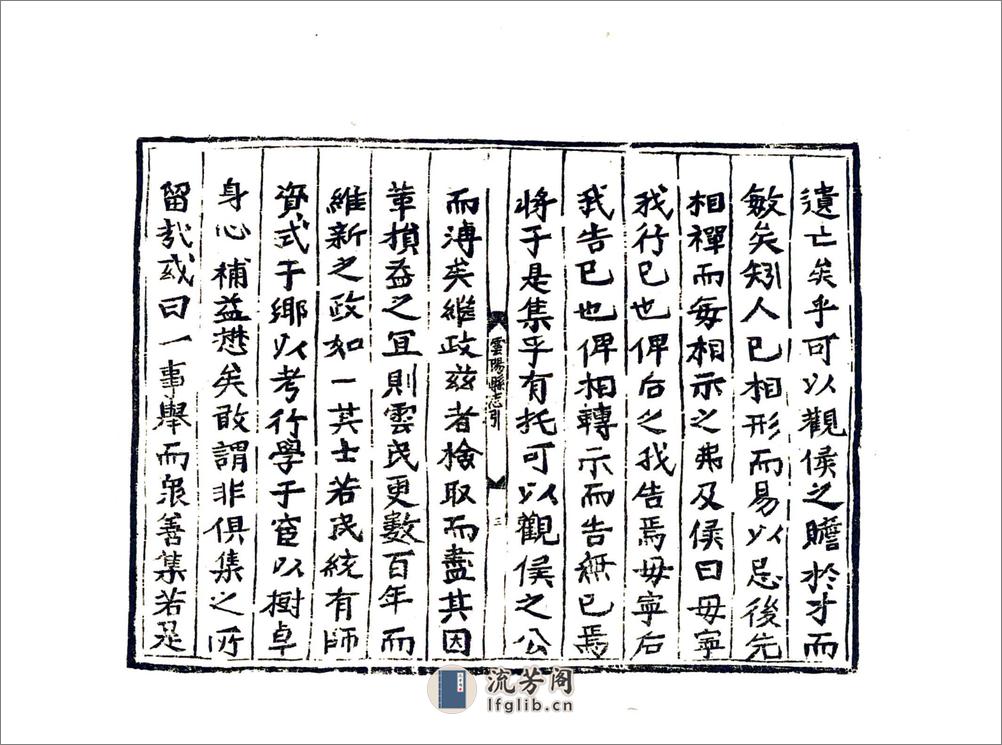 遺亡矣乎可以觀侯之贍於才而
敏矣矧人已相形而易以忌後先
相禪而每相示之弗及侯曰毋寧
我行已也俾后之我告焉毋寧后
我告已也俾相轉示而告無已焉
將于是集乎有托可以觀侯之公
雲陽縣志引
三
而溥矣維政茲者檢取而盡其因
革損益之宜則雲民更數百年而
維新之政如一其士若民統有師
資式于鄉以考行學于宦以樹卓
身心補益懋矣敢謂非俱集之所
留哉或曰一事舉而衆善集若是
流芳阁
lfglib.cn